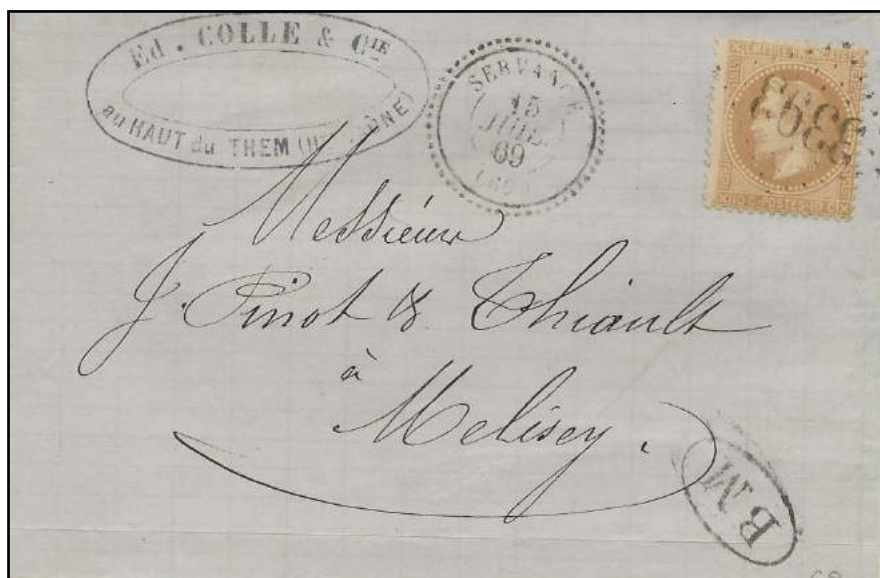 Ed. COLLE & CIE
au HAUT du THEM (Hte SAÔNE)
SERVANCE
15
JUIL.
69
EMPIRE
3393
10 C. POSTES 10 C.
Messieurs
J. Pinot & Thiault
à
Melisey.
BM